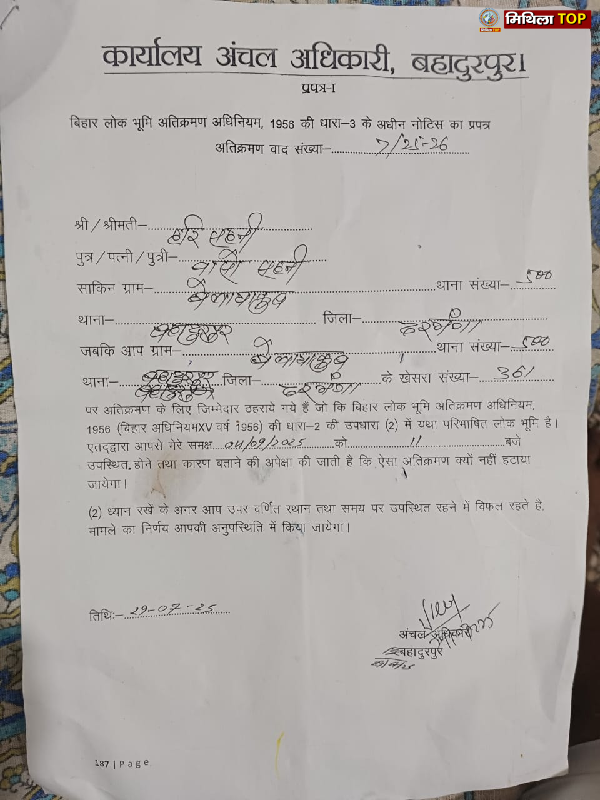 मिथिला TOP
कार्यालय अंचल अधिकारी, बहादुरपुर।
प्रपत्र-I
बिहार लोक भूमि अतिक्रमण अधिनियम, 1956 की धारा-3 के अधीन नोटिस का प्रपत्र
अतिक्रमण वाद संख्या-7/25-26
श्री / श्रीमती-हरि सहनी
पुत्र / पत्नी / पुत्री-सहनी
साकिन ग्राम- थाना संख्या-500
थाना-बहादुरपुर जिला-दरभंगा
जबकि आप ग्राम- थाना संख्या-500
थाना-बहादुरपुर जिला-दरभंगा के खेसरा संख्या-361
पर अतिक्रमण के लिए जिम्मेदार ठहराये गये हैं जो कि बिहार लोक भूमि अतिक्रमण अधिनियम,
1956 (बिहार अधिनियमXV वर्ष 1956) की धारा-2 की उपधारा (2) में यथा परिभाषित लोक भूमि है।
एतद्द्वारा आपसे मेरे समक्ष 04/09/2025 को 11 बजे
उपस्थित होने तथा कारण बताने की अपेक्षा की जाती है कि ऐसा अतिक्रमण क्यों नहीं हटाया
जायेगा।
(2) ध्यान रखें के अगर आप उपर वर्णित स्थान तथा समय पर उपस्थित रहने में विफल रहते है,
मामले का निर्णय आपकी अनुपस्थिति में किया जायेगा।
तिथिः-29-07-25
अंचल अधिकारी
बहादुरपुर
187 | Page